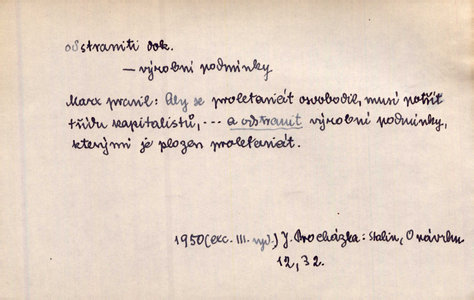 odstraniti dok.
— výrobní podmínky
Marx pravil: Aby se proletariát osvobodil, musí potřít
třídu kapitalistů, --- a odstranit výrobní podmínky,
kterými je plozen proletariát.
1950 (exc. III. vyd.) J. Procházka: Stalin, O návrhu
12, 32.